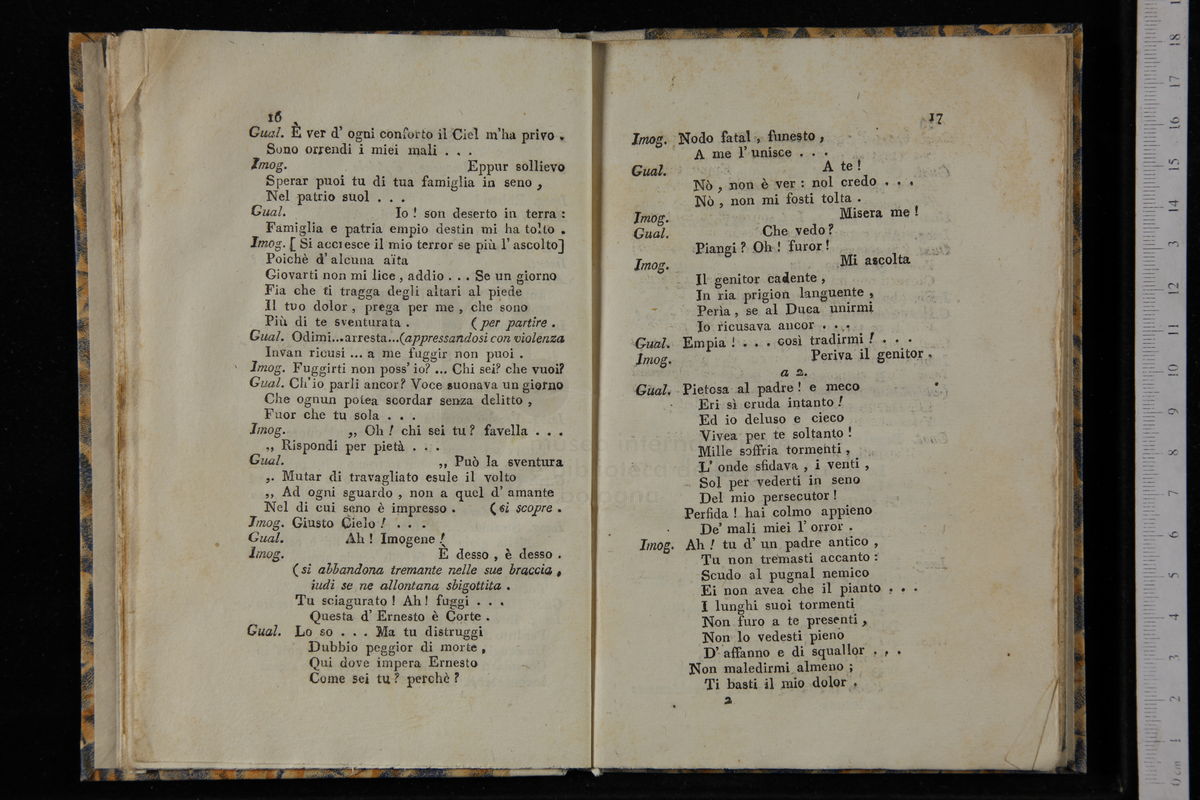 16
Gual. È ver d' ogni conforto il Ciel m'ha privo .
Sono orrendi i miei mali . . .
Imog. Eppur sollievo
Sperar puoi tu di tua famiglia in seno ,
Nel patrio suol . . .
Gual. Io ! son deserto in terra :
Famiglia e patria empio destin mi ha tolto .
Imog. [ Si accresce il mio terror se più l' ascolto]
Poichè d' alcuna aïta
Giovarti non mi lice , addio . . . Se un giorno
Fia che ti tragga degli altari al piede
Il tuo dolor , prega per me , che sono
Più di te sventurata . ( per partire .
Gual. Odimi...arresta...(appressandosi con violenza
Invan ricusi ... a me fuggir non puoi .
Imog. Fuggirti non poss' io? ... Chi sei? che vuoi?
Gual. Ch'io parli ancor? Voce suonava un giorno
Che ognun potea scordar senza delitto ,
Fuor che tu sola . . .
Imog. ,, Oh ! chi sei tu ? favella . . .
,, Rispondi per pietà . . .
Gual. ,, Può la sventura
,. Mutar di travagliato esule il volto
,, Ad ogni sguardo , non a quel d' amante
Nel di cui seno è impresso . ( si scopre .
Imog. Giusto Cielo ! . . .
Gual. Ah ! Imogene !
Imog. È desso , è desso .
( si abbandona tremante nelle sue braccia ,
iudi se ne allontana sbigottita .
Tu sciagurato ! Ah ! fuggi . . .
Questa d' Ernesto è Corte .
Gual. Lo so . . . Ma tu distruggi
Dubbio peggior di morte ,
Qui dove impera Ernesto
Come sei tu ? perchè ?
17
Imog. Nodo fatal , funesto ,
A me l' unisce . . .
Gual. A te !
Nò , non è ver : nol credo . . .
Nò , non mi fosti tolta .
Imog. Misera me !
Gual. Che vedo ?
Piangi ? Oh ! furor !
Imog. Mi ascolta
Il genitor cadente ,
In ria prigion languente ,
Perìa , se al Duca unirmi
Io ricusava ancor . . .
Gual. Empia ! . . . così tradirmi ! . . .
Imog. Periva il genitor .
a 2.
Gual. Pietosa al padre ! e meco
Eri sì cruda intanto !
Ed io deluso e cieco
Vivea per te soltanto !
Mille soffria tormenti ,
L' onde sfidava , i venti ,
Sol per vederti in seno
Del mio persecutor !
Perfida ! hai colmo appieno
De' mali miei l' orror .
Imog. Ah ! tu d' un padre antico ,
Tu non tremasti accanto :
Scudo al pugnal nemico
Ei non avea che il pianto . . .
I lunghi suoi tormenti
Non furo a te presenti ,
Non lo vedesti pieno
D' affanno e di squallor . . .
Non maledirmi almeno ;
Ti basti il mio dolor .
2